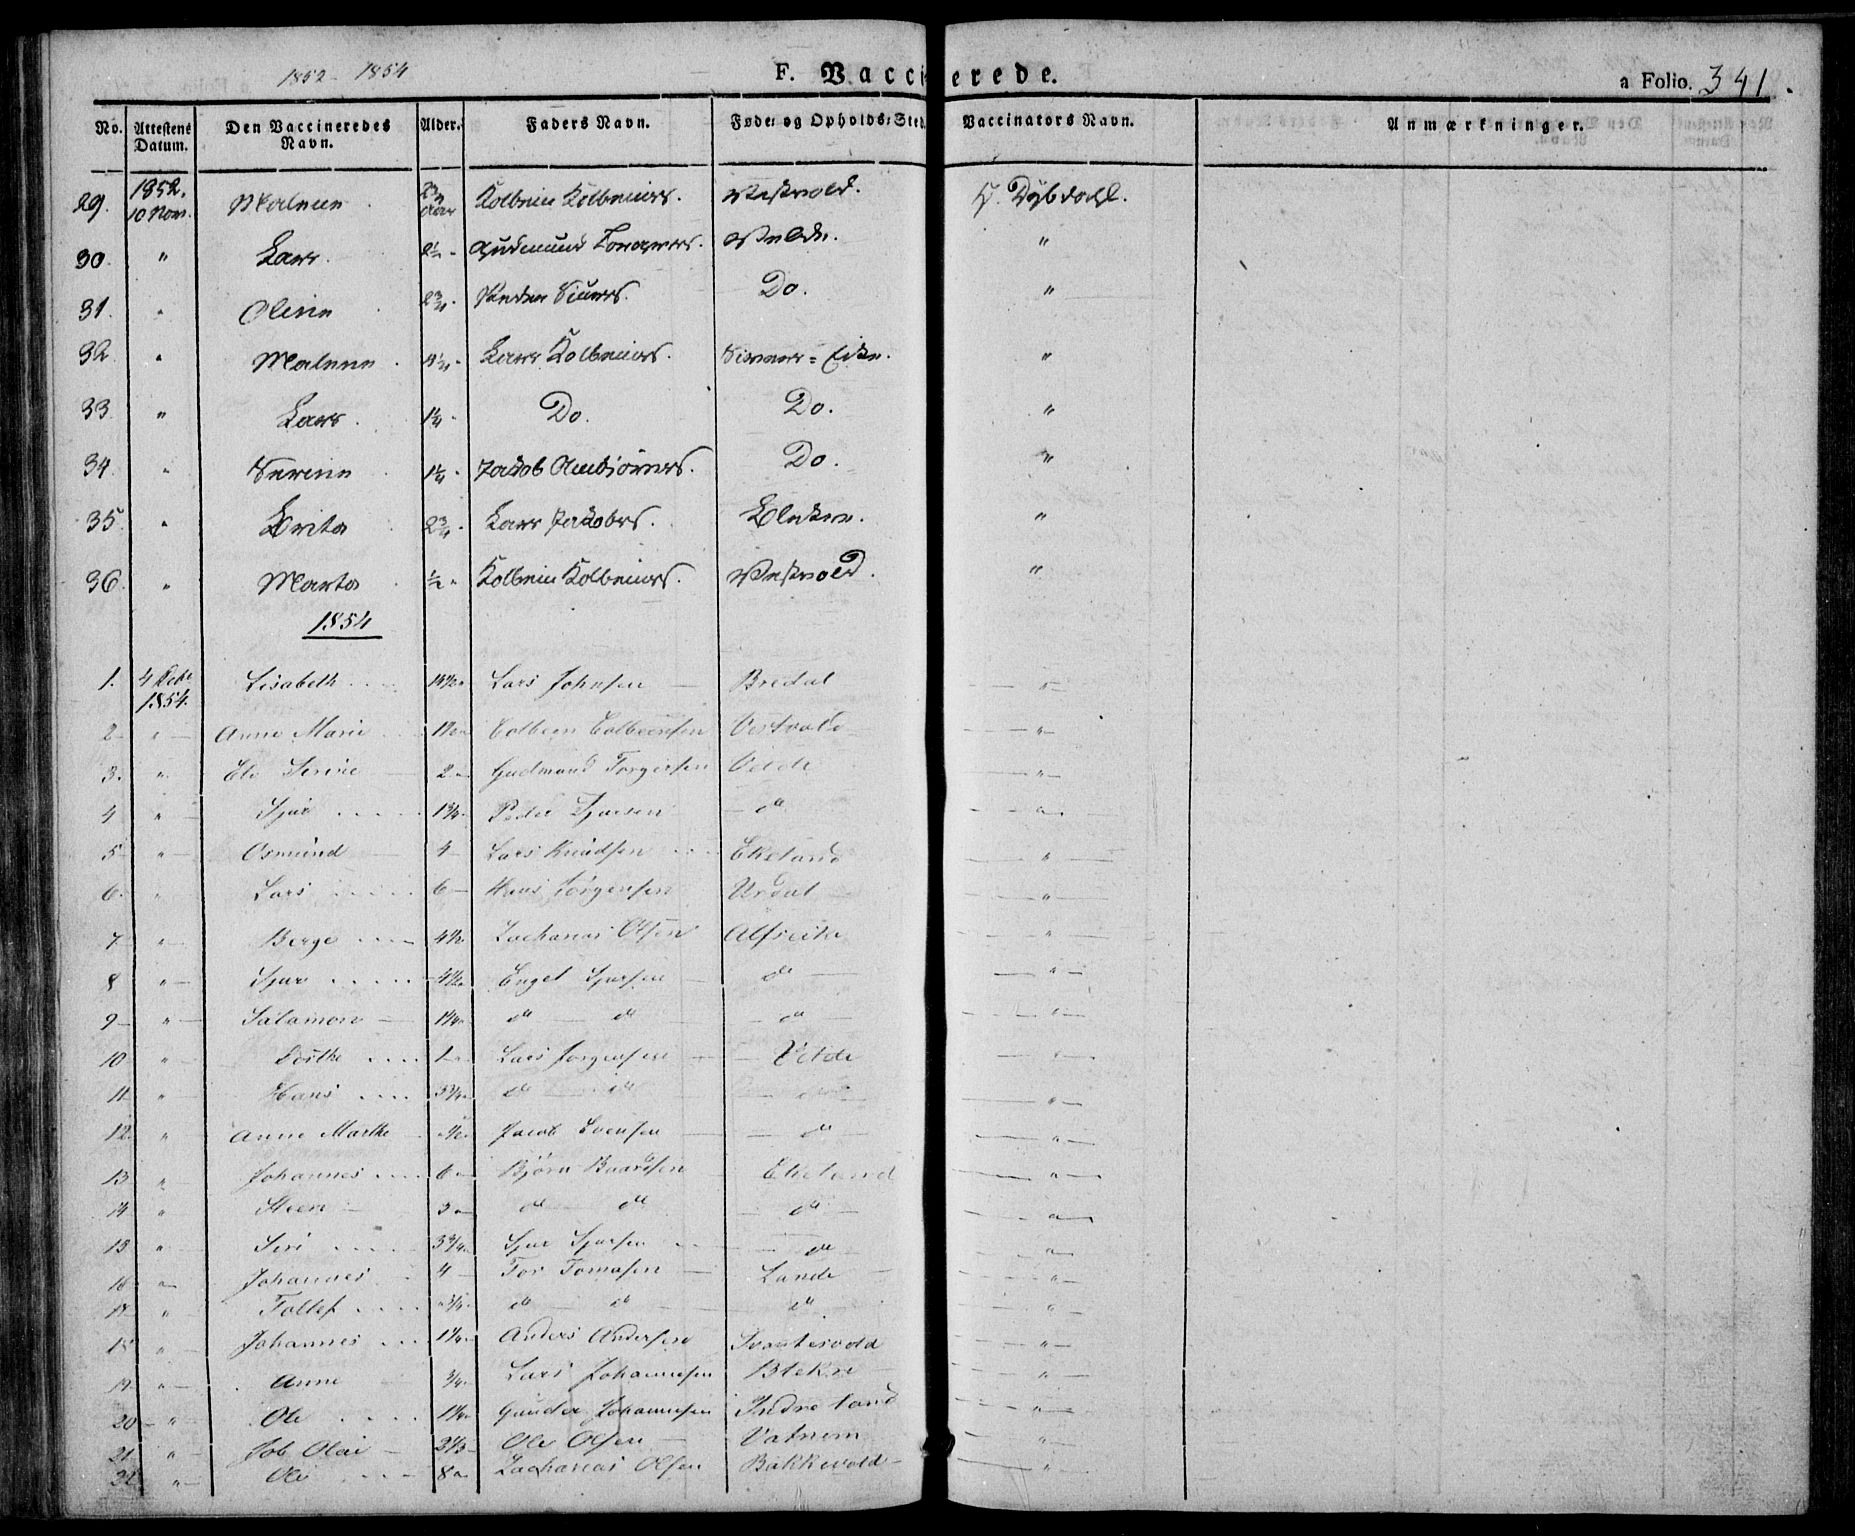 1852 - 1854 F. Vaccinerede. a Folio. 341.
No. Attestens Datum. Den Vaccineredes Navn. Alder. Faders Navn. Føde- og Opholds-Sted. Vaccinators Navn. Anmærkninger.
29. 1852. 10 Novr. Malene 2 3/4 Aar Kolbein Kolbeins. Vestvold. Dybdahl.
30. " Lars 2 1/2 - Gudmund Torgers. Velde. "
31. " Oline 2 3/4 - Peder Siurs. Do. "
32 " Malene 4 1/4 - Lars Kolbeins. Eike. "
33 " Lars. 1 1/4 - Do. Do. "
34. " Serine 1 1/4 - Jakob Do. "
35. " Brita 2 3/4 - Lars Jakobs. Blekne. "
36. " Marta 1/2 - Kolbein Kolbeins. Vestvold. "
1854
1. 4 1854. Lisabeth 1/2 Lars Johnsen Bredal "
2 " Anne Marie 1 1/2 Colbeen Colbeensen Vestvold "
3. " Serine 2 - Gudmund Torgersen Velde "
4 " Sjur 1 3/4 Peder Sjursen do "
5 " Osmund 4 Lars Knudsen Ekeland "
6. " Lars 6 - Hans Jørgensen Urdal "
7 " Berge 4 1/2 Zacharias Olsen Alfseike "
8 " Sjur 4 1/2 Engel Sjursen do "
9 - " Salamon 1 1/4 do do do "
10 " 1 - Lars Jørgensen Velde "
11 " Hans 5 3/4 do do "
12. " Anne Marthe 1/2 Jacob Evensen do "
13 " Johannes 6 - Bjørn Baardsen Ekeland "
14 " Steen 3 - do do do "
15 " Siri 3 3/4 Sjur Sjursen do "
16 " Johannes 4 Tor Tomasen Lunde "
17 " Tollef 3/4 do do do "
18 " Johannes 1 1/4 Anders Andersen Svartevold "
19. " Anne 3/4 Lars Johannesen Blekne "
20 - " Ole 1 1/4 Gunder Johannesen Indre land "
21 " Job Olai 2 1/3 Ole Olsen Vatnem "
22 " Ole 8 - Zacharias Olsen Bakkevold "